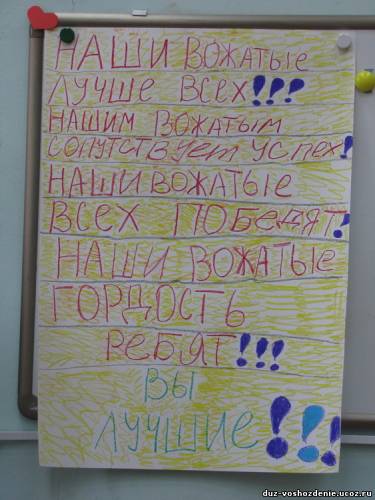 НАШИ ВОЖАТЫЕ
ЛУЧШЕ ВСЕХ!!!
НАШИМ ВОЖАТЫМ
СОПУТСТВУЕТ УСПЕХ!
НАШИ ВОЖАТЫЕ
ВСЕХ ПОБЕДЯТ!
НАШИ ВОЖАТЫЕ
ГОРДОСТЬ
РЕБЯТ!!!
ВЫ
ЛУЧШИЕ!!!
duz-voshozdenie.ucoz.ru